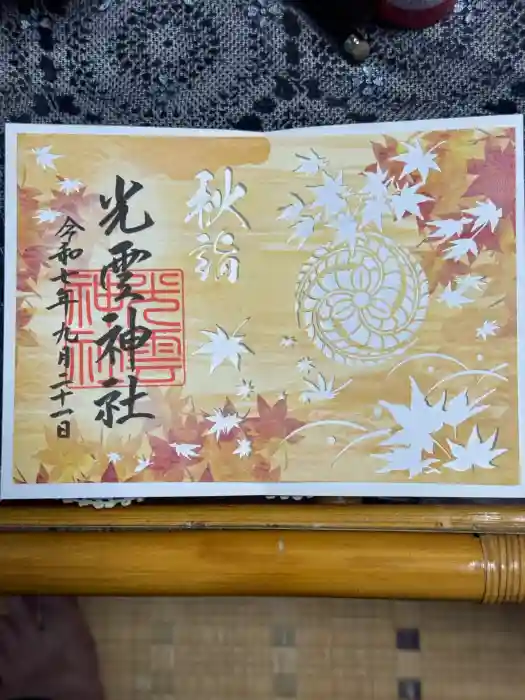 秋詣
光雲神社
令和七年九月二十一日
光雲
神社